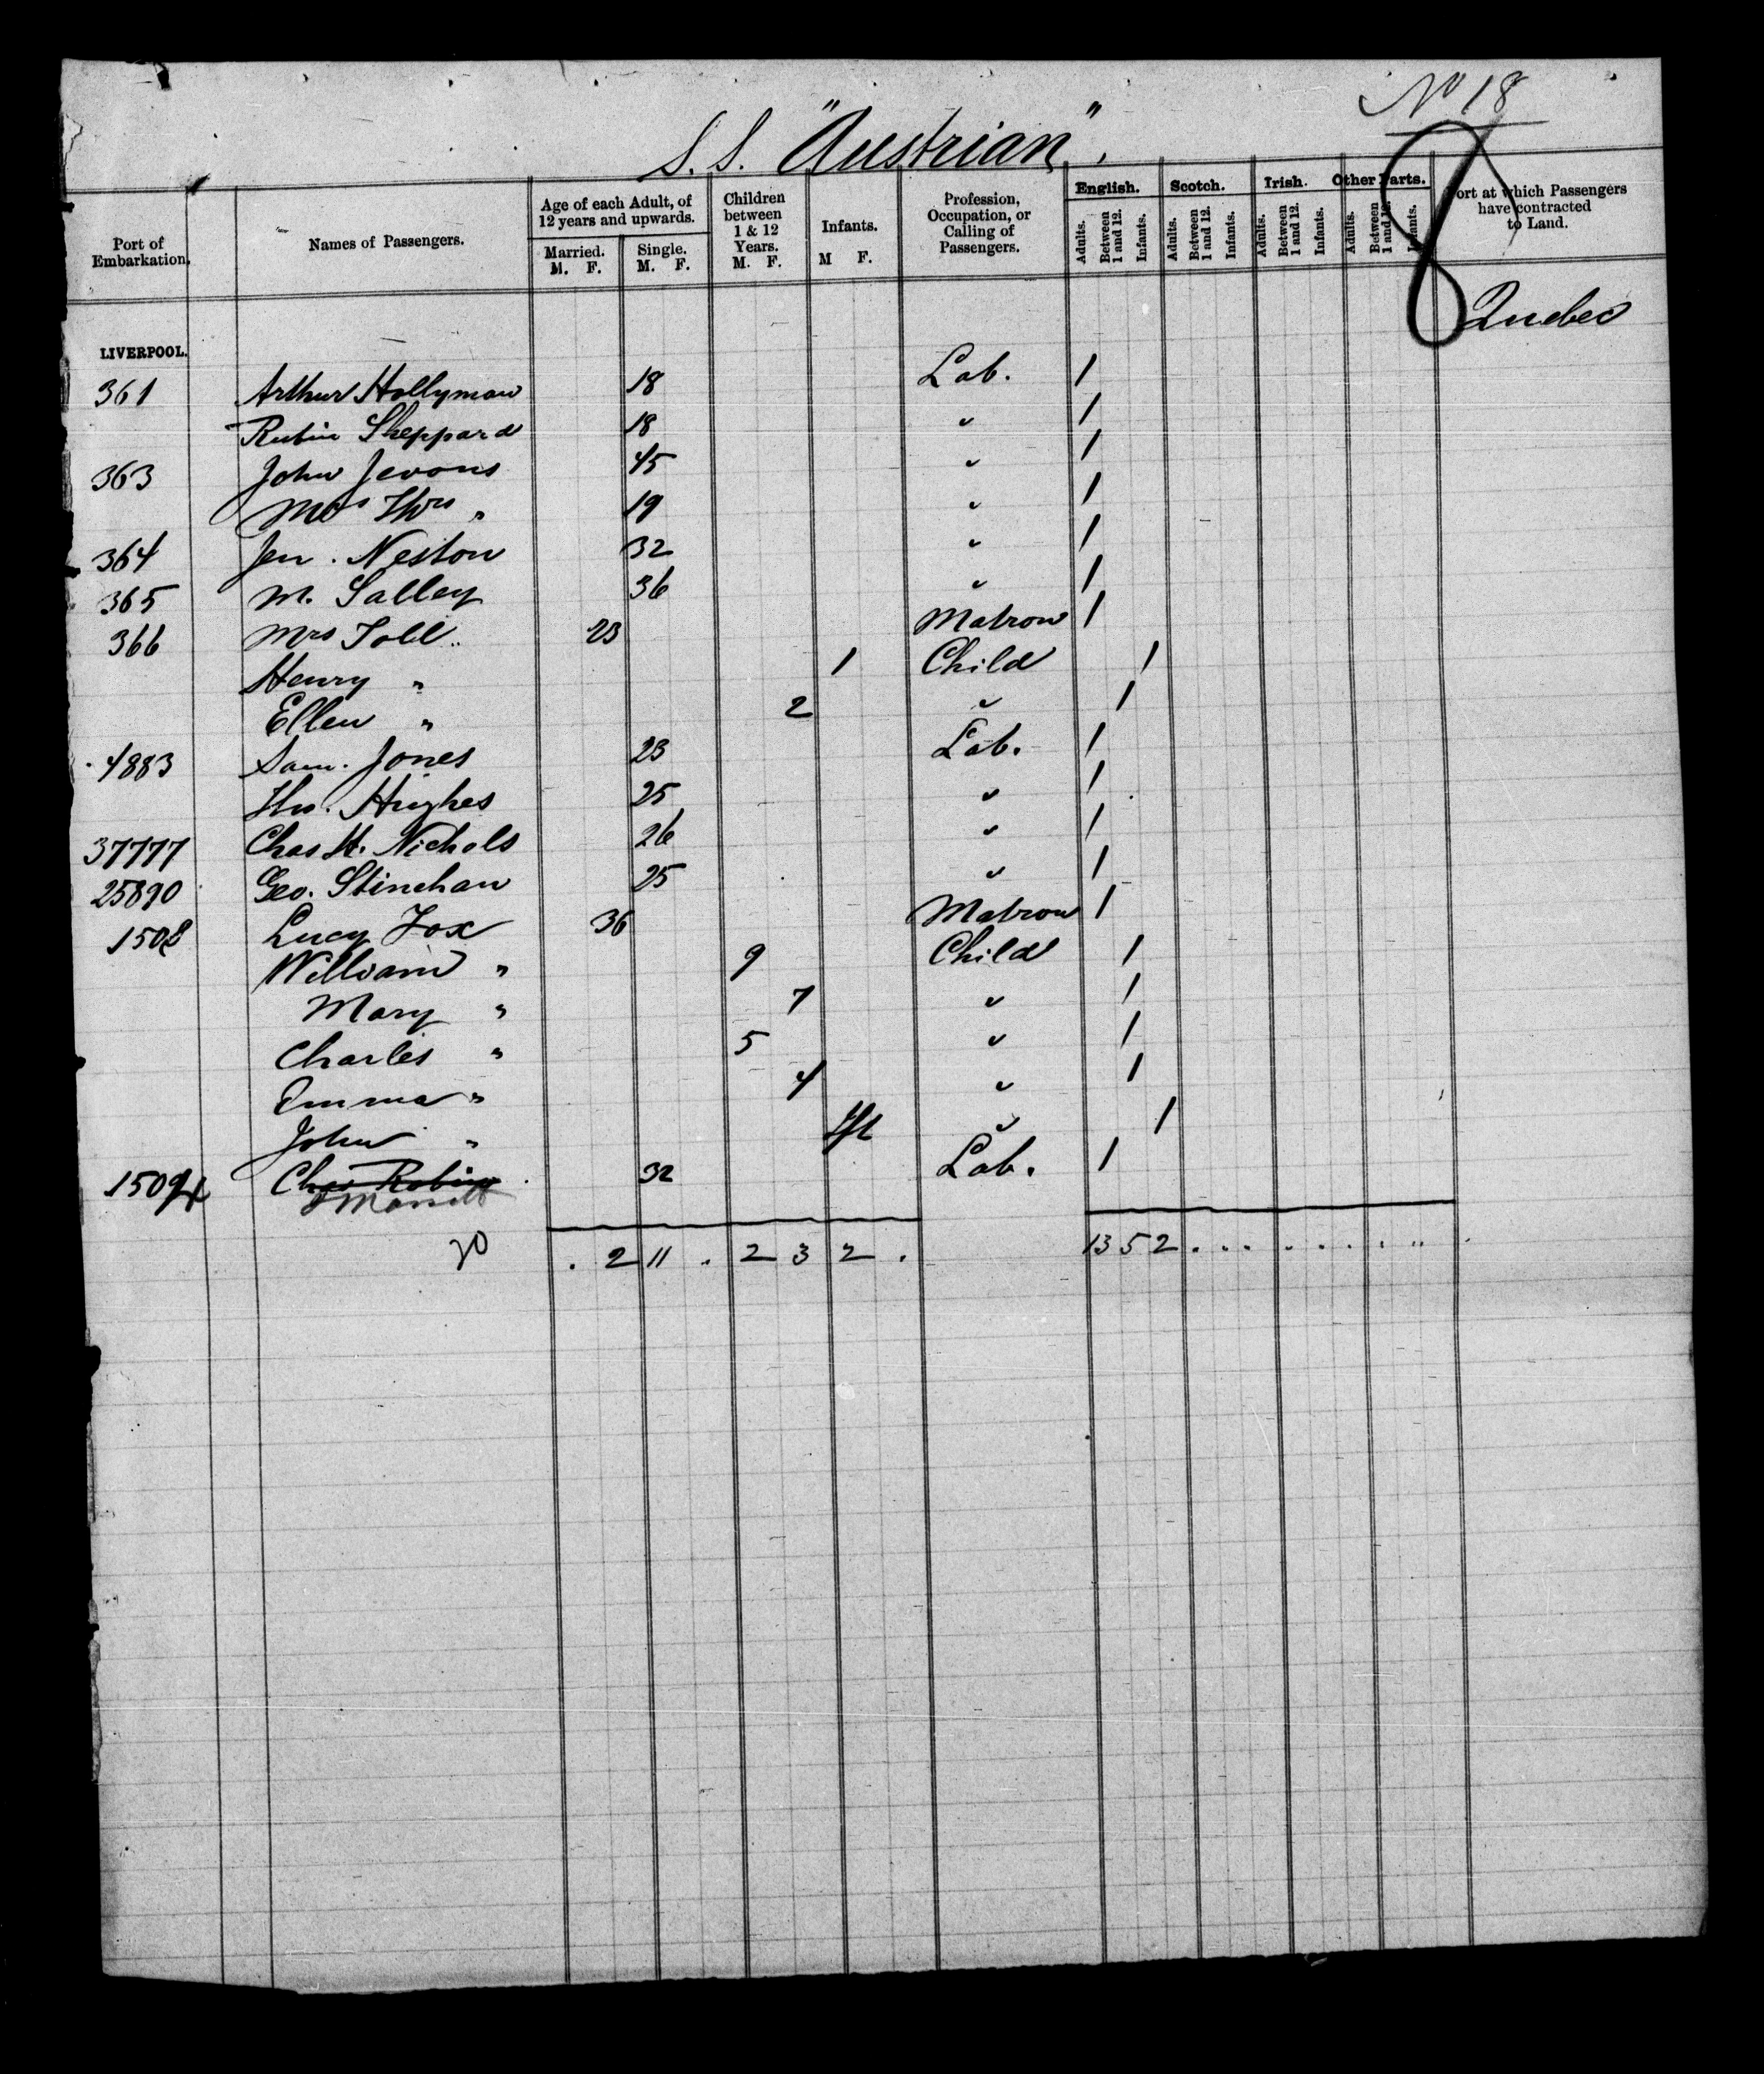 No 18
S.S. "Austrian".
8
Port of Embarkation. Names of Passengers. Age of each Adult, of 12 years and upwards. Married. M. F. Single. M. F. Children between 1 & 12 Years. M. F. Infants. M F. Profession, Occupation, or Calling of Passengers. English. Adults. Between 1 and 12. Infants. Scotch. Adults. Between 1 and 12. Infants. Irish. Adults. Between 1 and 12. Infants. Other Parts. Adults. Between 1 and 12. Infants. Port at which Passengers have contracted to Land.
Quebec
LIVERPOOL.
361 Arthur Hollyman 18 Lab. 1
Rubin Sheppard 18 " 1
363 John Jevons 45 " 1
Thos " 19 " 1
364 Jen. Neston 32 " 1
365 M. Salley 36 " 1
366 Mrs Toll 23 Matron 1
Henry " 1 Child 1
Ellen " 2 " 1
4883 Sam. Jones 23 Lab. 1
Thos. Hughes 25 " 1
37777 Chas H. Nichols 26 " 1
25890 Geo. Stinchan 25 " 1
1508 Lucy Fox 36 Matron 1
William " 9 Child 1
Mary " 7 " 1
Charles " 5 " 1
Emma " 4 " 1
John " Inft " 1
1509 Chas Robins 32 Lab. 1
20 . 2 11 . 2 3 2 . 13 5 2 . . . . . . . . .